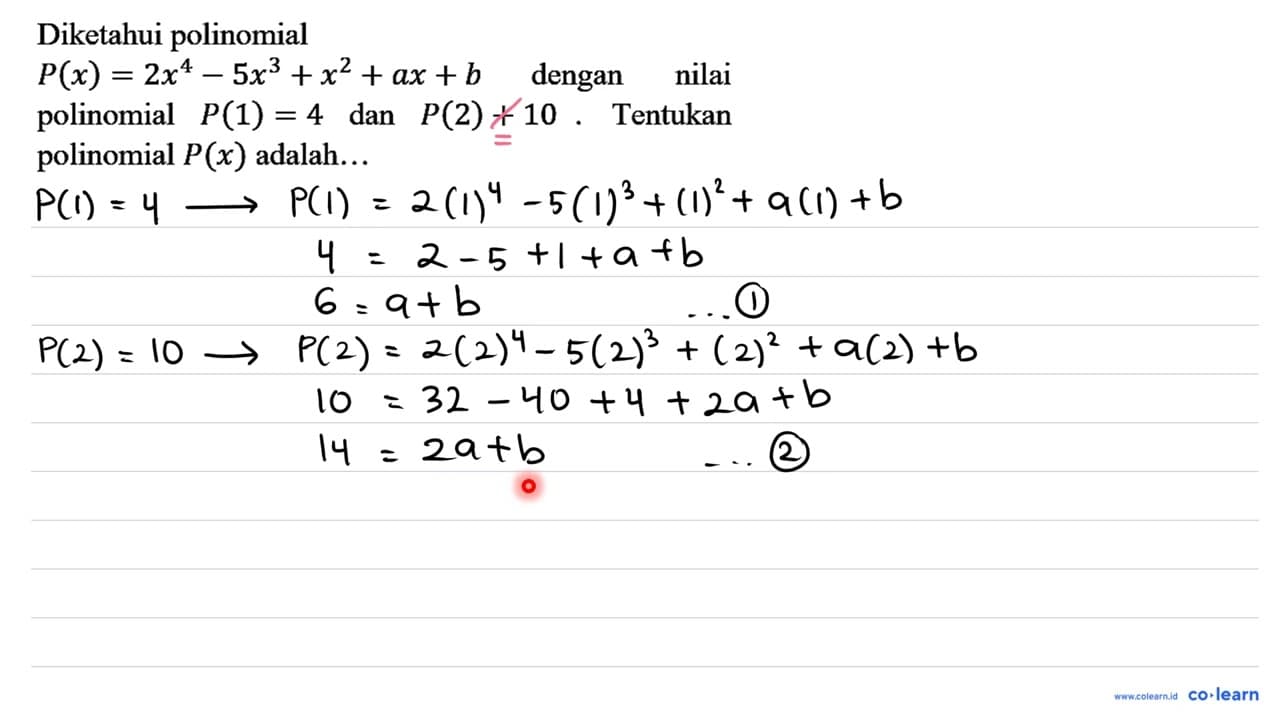 Diketahui polinomial
P(x) = 2x⁴ − 5x³ + x² + ax + b dengan nilai
polinomial P(1) = 4 dan P(2) + 10 . Tentukan
=
polinomial P(x) adalah...
P(1) = 4 ⟶ P(1) = 2(1)⁴ − 5(1)³ + (1)² + a(1) + b
4 = 2 − 5 + 1 + a + b
6 = a + b ... ①
P(2) = 10 ⟶ P(2) = 2(2)⁴ − 5(2)³ + (2)² + a(2) + b
10 = 32 − 40 + 4 + 2a + b
14 = 2a + b ... ②
www.colearn.id co·learn